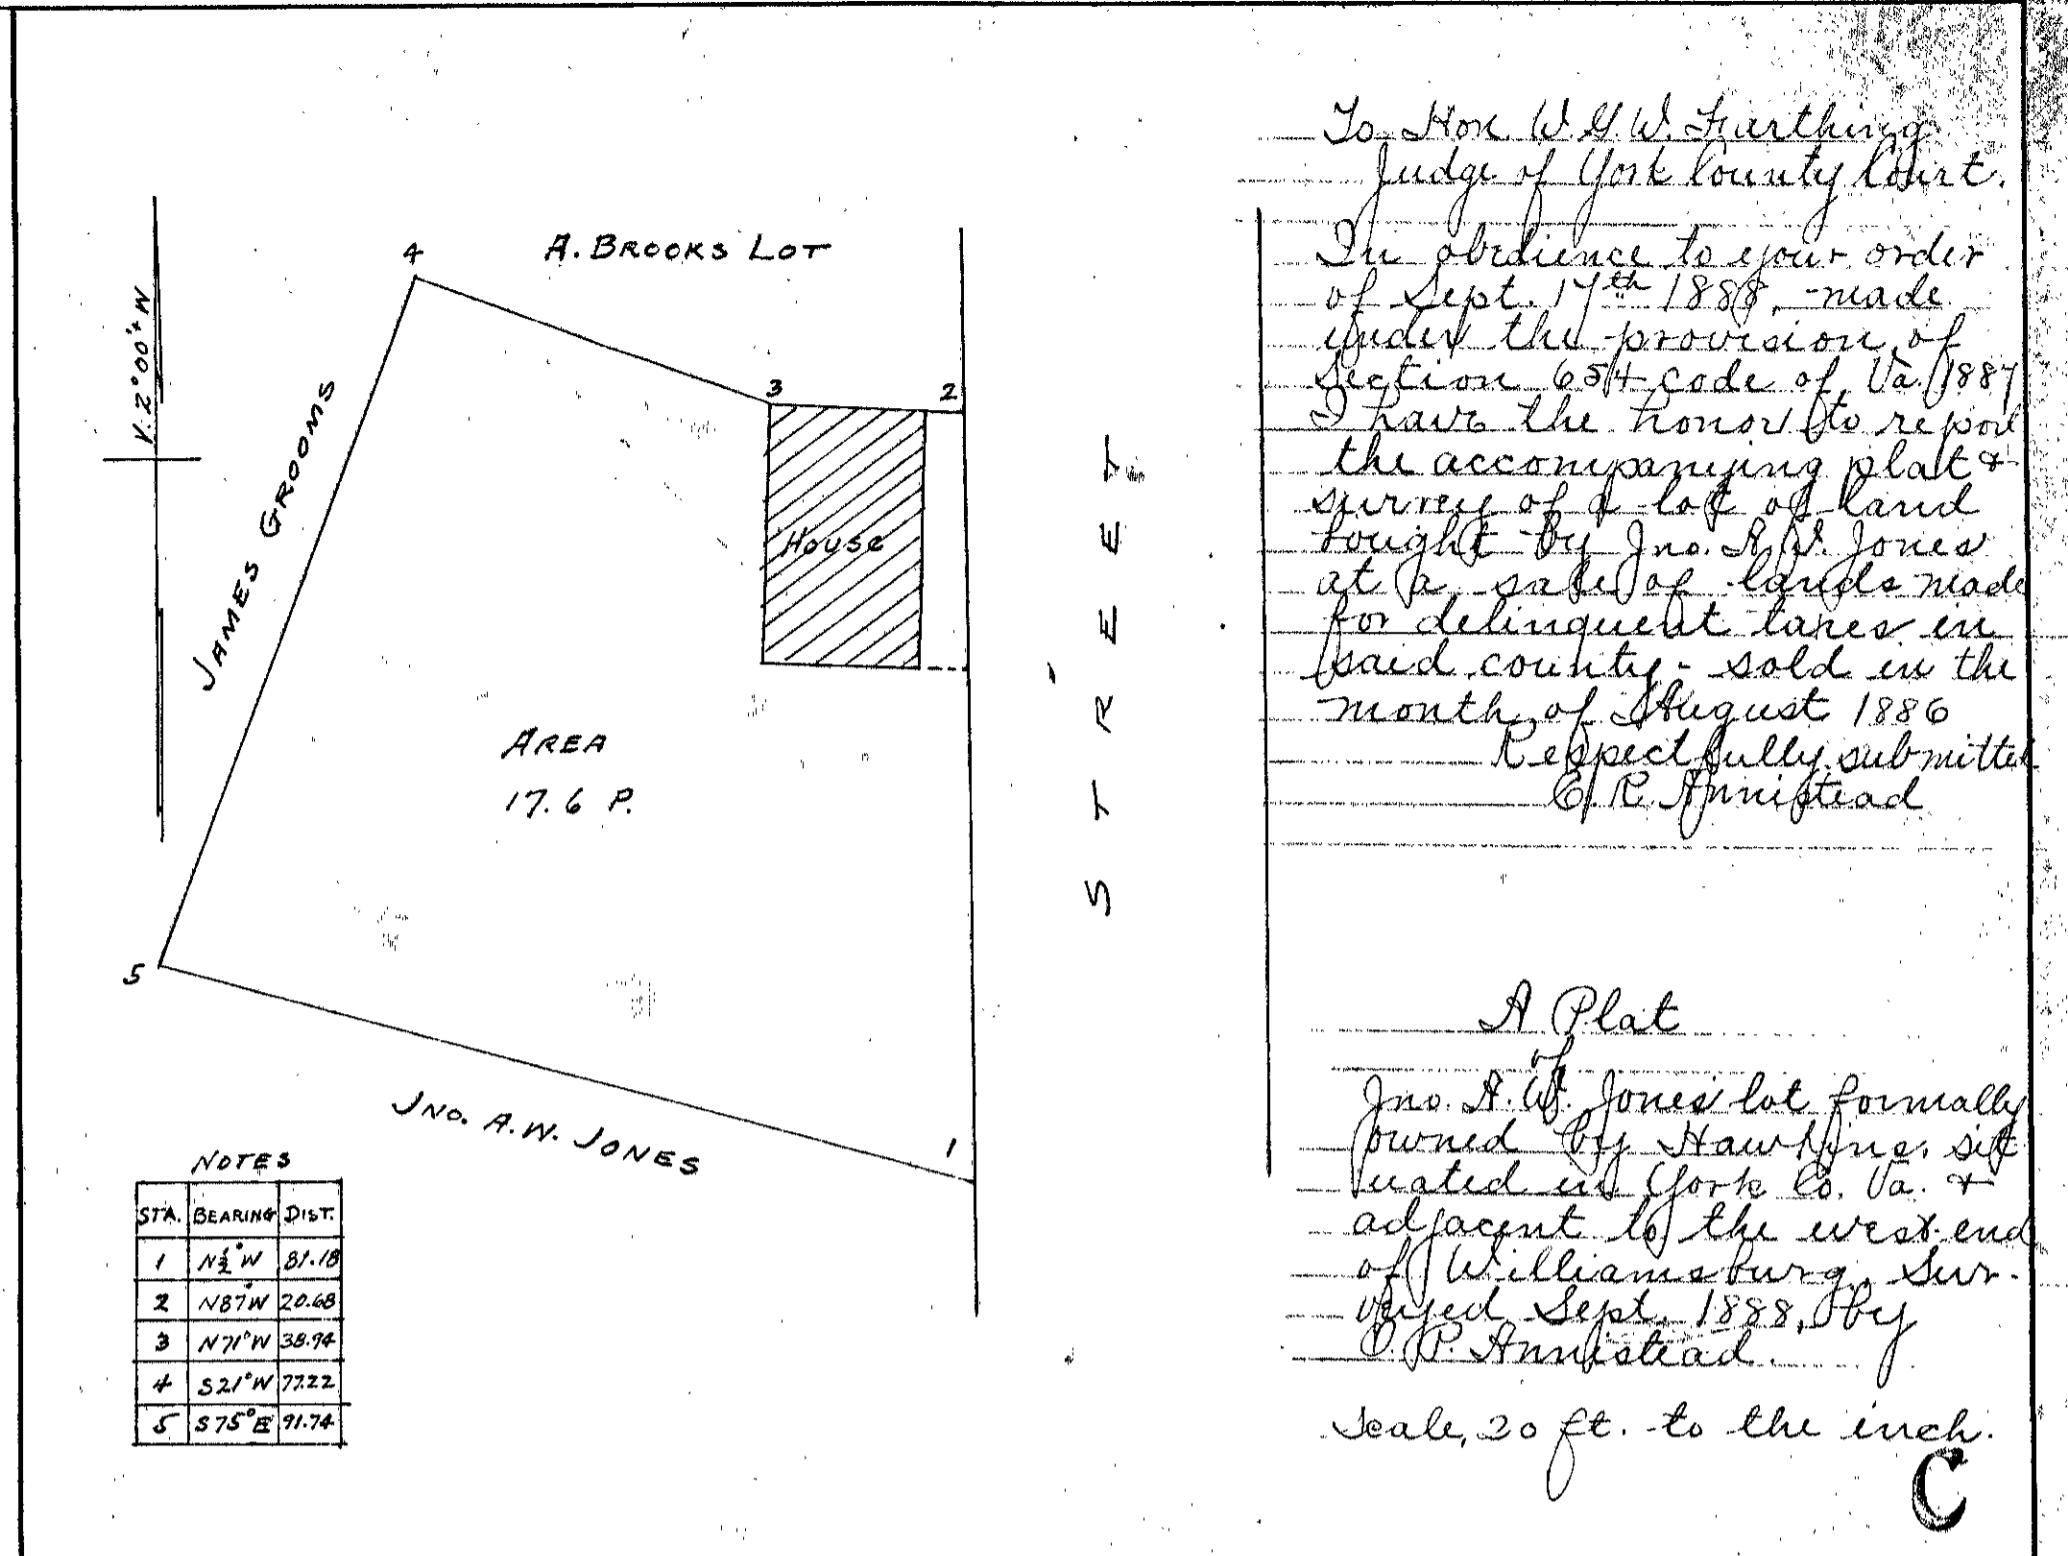 A. BROOKS LOT
4
3
2
V. 2°00'+ W
JAMES GROOMS
House
STREET
AREA
17.6 P.
5
1
JNO. A.W. JONES
NOTES
STA. BEARING DIST.
1 N½°W 81.18
2 N87°W 20.68
3 N71°W 38.94
4 S21°W 77.22
5 S75°E 91.74
To Hon W. G. W. Farthing
Judge of York County Court.
In obedience to your order
of Sept. 17th 1888, -made
under the provision of
Section 654 code of Va. 1887
I have the honor to report
the accompanying plat &
survey of a lot of land
bought by Jno. A. W. Jones
at a sale of lands made
for delinquent taxes in
said county - sold in the
month of August 1886
Respectfully submitted
E. R. Annistead
A Plat
of
Jno. A. W. Jones' lot formally
owned by Hawkins, sit
uated in York Co. Va. &
adjacent to the west end
of Williamsburg. Sur-
veyed Sept. 1888, by
Annistead.
Scale, 20 ft. to the inch.
C